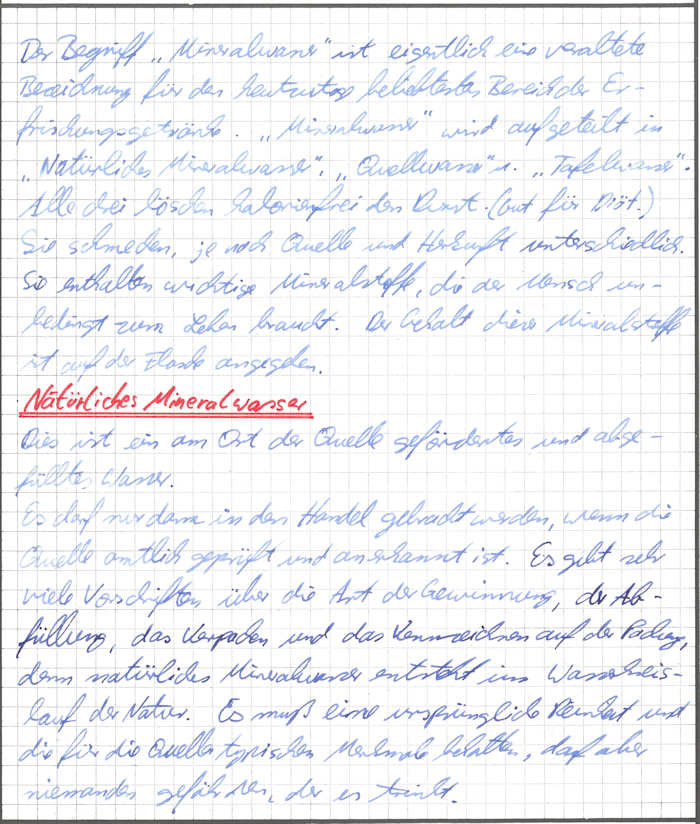 Der Begriff „Mineralwasser" ist eigentlich eine veraltete
Bezeichnung für den heutzutage beliebtesten Bereich der Er-
frischungsgetränke. „Mineralwasser" wird aufgeteilt in
„Natürliches Mineralwasser", „Quellwasser" u. „Tafelwasser".
Alle drei löschen kalorienfrei den Durst. (Gut für Diät.)
Sie schmecken, je nach Quelle und Herkunft unterschiedlich.
Sie enthalten wichtige Mineralstoffe, die der Mensch un-
bedingt zum Leben braucht. Der Gehalt dieser Mineralstoffe
ist auf der Flasche angegeben.
Natürliches Mineralwasser
Dies ist ein am Ort der Quelle gefördertes und abge-
fülltes Wasser.
Es darf nur dann in den Handel gebracht werden, wenn die
Quelle amtlich geprüft und anerkannt ist. Es gibt sehr
viele Vorschriften über die Art der Gewinnung, der Ab-
füllung, das Verpacken und das Kennzeichnen auf der Packung,
denn natürliches Mineralwasser entsteht im Wasserkreis-
lauf der Natur. Es muß eine ursprüngliche Reinheit und
die für die Quelle typischen Merkmale behalten, darf aber
niemanden gefährden, der es trinkt.